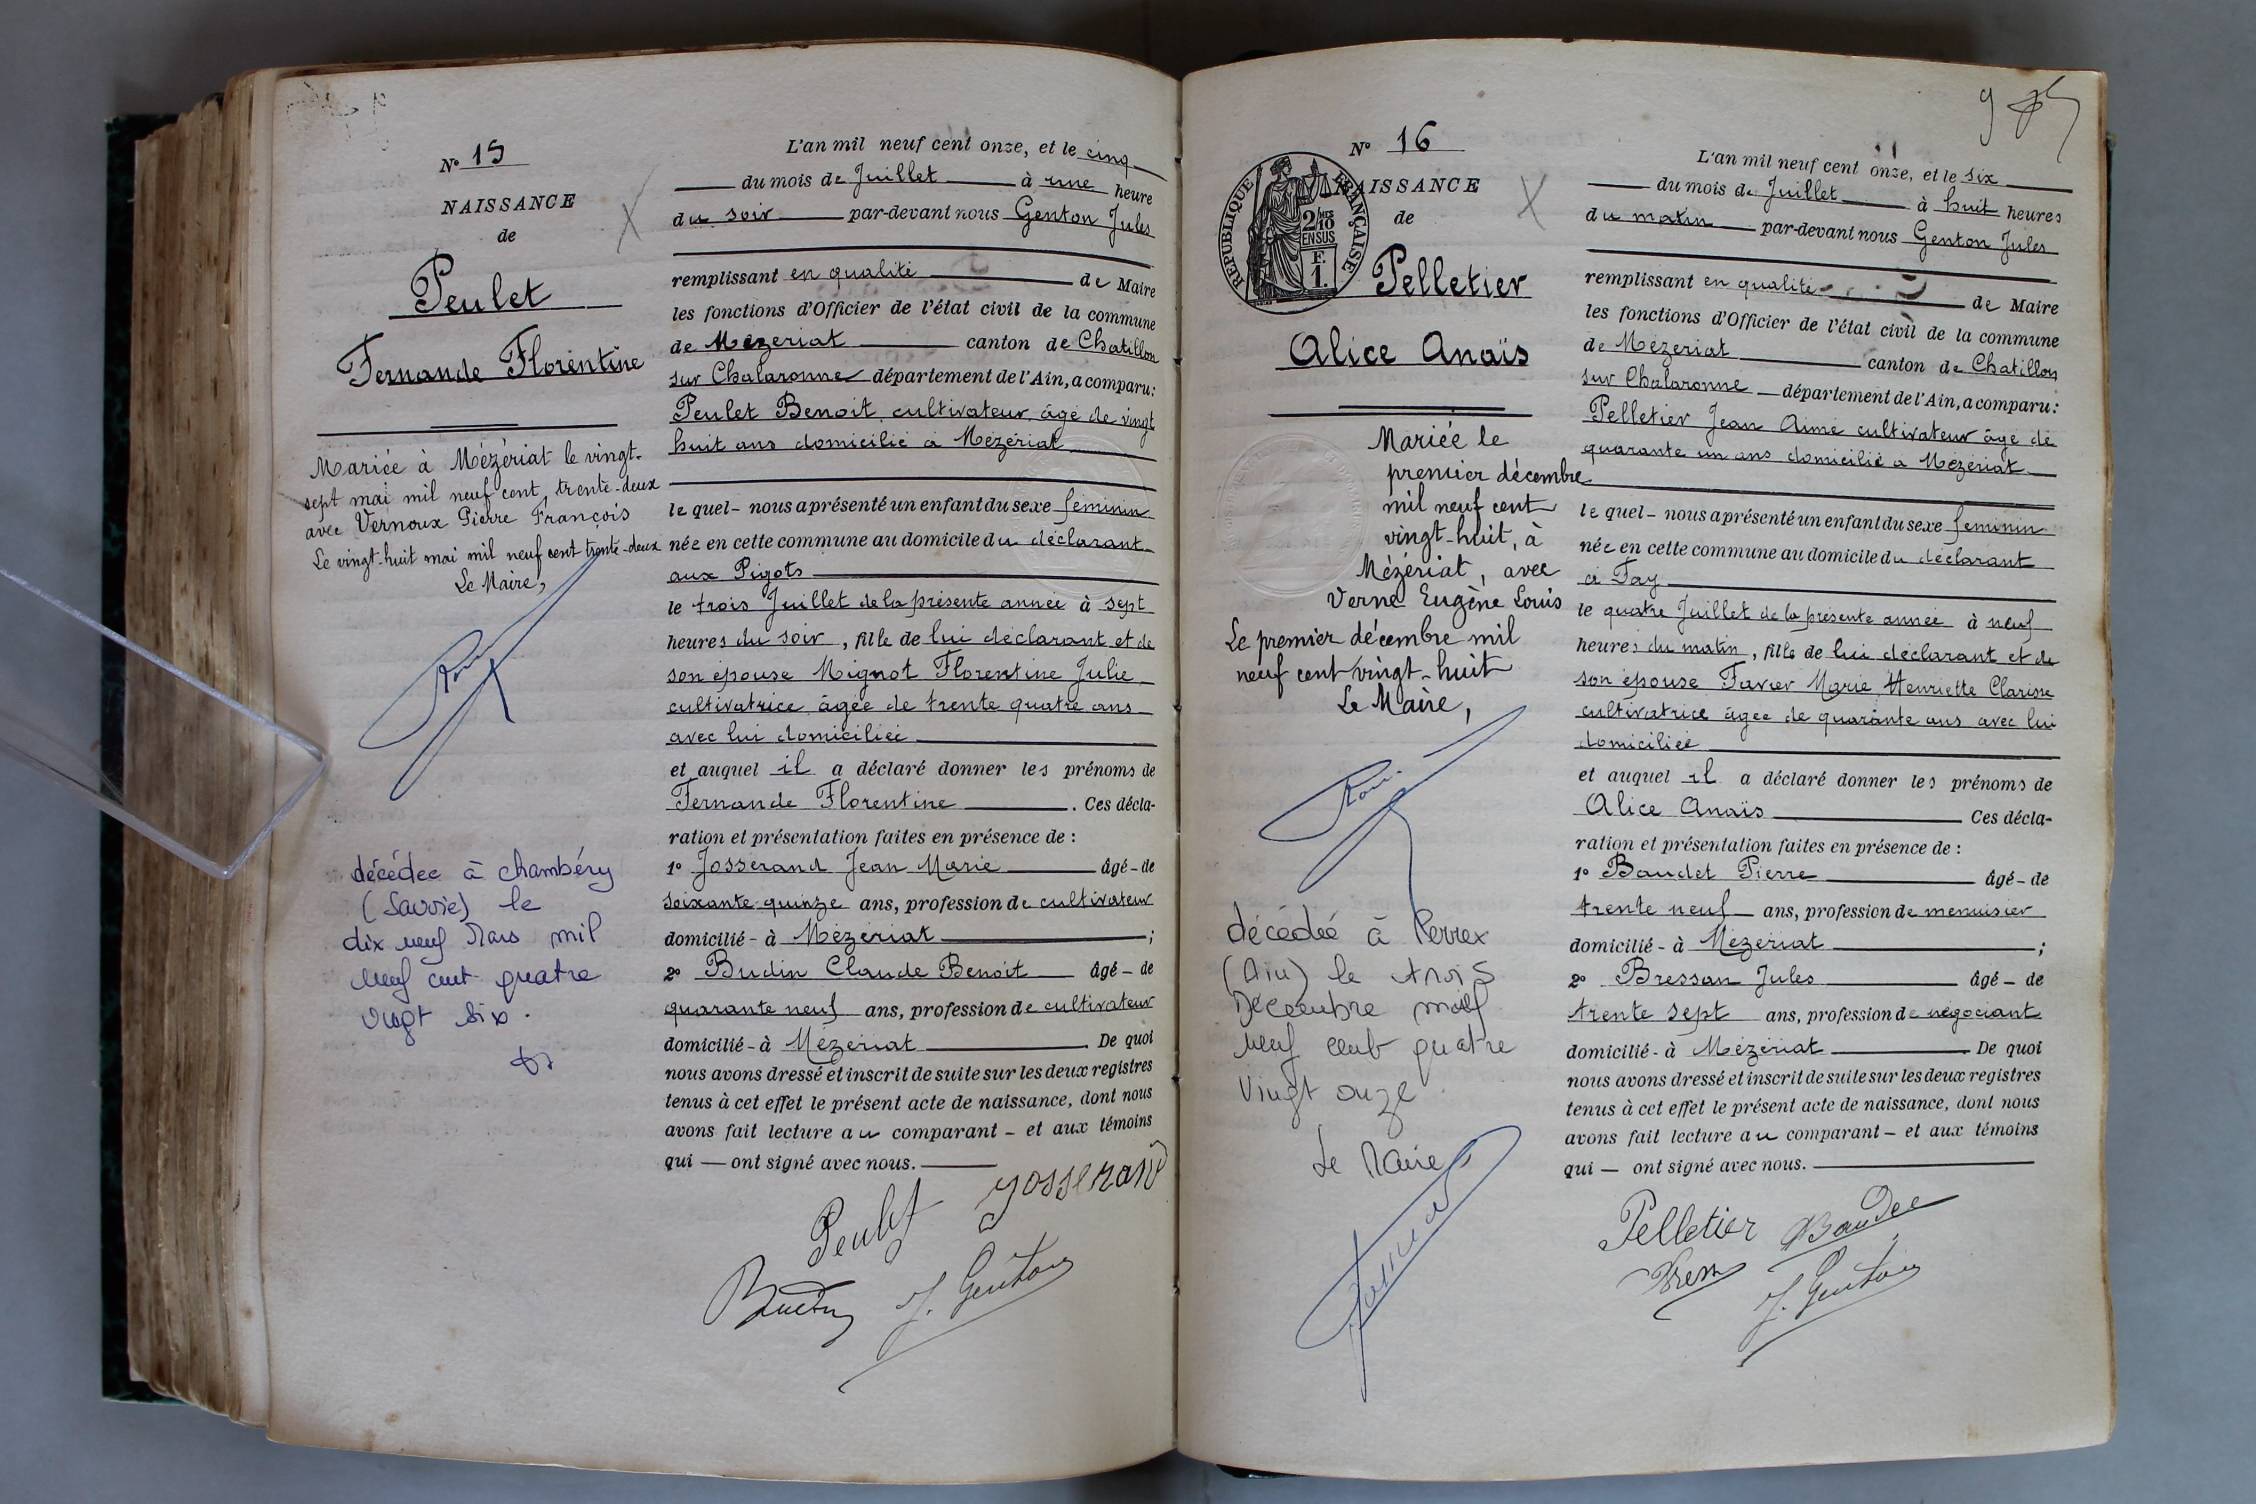 Nº 15
NAISSANCE
de
Peulet
Fernande Florentine
Mariée à Mézériat le vingt-
sept mai mil neuf cent trente-deux
avec Vernoux Pierre François
Le vingt-huit mai mil neuf cent trente-deux
Le Maire,
décédée à Chambéry
(Savoie) le
dix neuf Mars mil
neuf cent quatre
vingt six.
L'an mil neuf cent onze, et le cinq
du mois de Juillet à une heure
du soir par-devant nous Genton Jules
remplissant en qualité de Maire
les fonctions d'Officier de l'état civil de la commune
de Mézériat canton de Chatillon
sur Chalaronne département de l'Ain, a comparu:
Peulet Benoit cultivateur âgé de vingt
huit ans domicilié à Mézériat
le quel - nous a présenté un enfant du sexe féminin
née en cette commune au domicile du déclarant
aux Pigots
le trois Juillet de la présente année à sept
heures du soir, fille de lui déclarant et de
son épouse Mignot Florentine Julie
cultivatrice âgée de trente quatre ans
avec lui domiciliée
et auquel il a déclaré donner les prénoms de
Fernande Florentine. Ces décla-
ration et présentation faites en présence de :
1º Josserand Jean Marie âgé - de
soixante quinze ans, profession de cultivateur
domicilié - à Mézériat ;
2º Budin Claude Benoit âgé - de
quarante neuf ans, profession de cultivateur
domicilié - à Mézériat. De quoi
nous avons dressé et inscrit de suite sur les deux registres
tenus à cet effet le présent acte de naissance, dont nous
avons fait lecture au comparant - et aux témoins
qui — ont signé avec nous.
Peulet Josserand
Budin J. Genton
9
Nº 16
NAISSANCE
de
RÉPUBLIQUE FRANÇAISE
2/10
EN SUS
F.
1.
Pelletier
Alice Anaïs
Mariée le
premier décembre
mil neuf cent
vingt-huit, à
Mézériat, avec
Verne Eugène Louis
Le premier décembre mil
neuf cent vingt-huit
Le Maire,
décédée à Perrex
(Ain) le trois
Décembre mil
neuf cent quatre
vingt onze
Le Maire
L'an mil neuf cent onze, et le six
du mois de Juillet à huit heures
du matin par-devant nous Genton Jules
remplissant en qualité de Maire
les fonctions d'Officier de l'état civil de la commune
de Mézériat canton de Chatillon
sur Chalaronne département de l'Ain, a comparu:
Pelletier Jean Aimé cultivateur âgé de
quarante un ans domicilié à Mézériat
le quel - nous a présenté un enfant du sexe féminin
née en cette commune au domicile du déclarant
à Fay
le quatre Juillet de la présente année à neuf
heures du matin, fille de lui déclarant et de
son épouse Favier Marie Henriette Clarisse
cultivatrice âgée de quarante ans avec lui
domiciliée
et auquel il a déclaré donner les prénoms de
Alice Anaïs Ces décla-
ration et présentation faites en présence de :
1º Baudet Pierre âgé - de
trente neuf ans, profession de menuisier
domicilié - à Mézériat ;
2º Bressan Jules âgé - de
trente sept ans, profession de négociant
domicilié - à Mézériat. De quoi
nous avons dressé et inscrit de suite sur les deux registres
tenus à cet effet le présent acte de naissance, dont nous
avons fait lecture au comparant - et aux témoins
qui — ont signé avec nous.
Pelletier Baudet
J. Genton